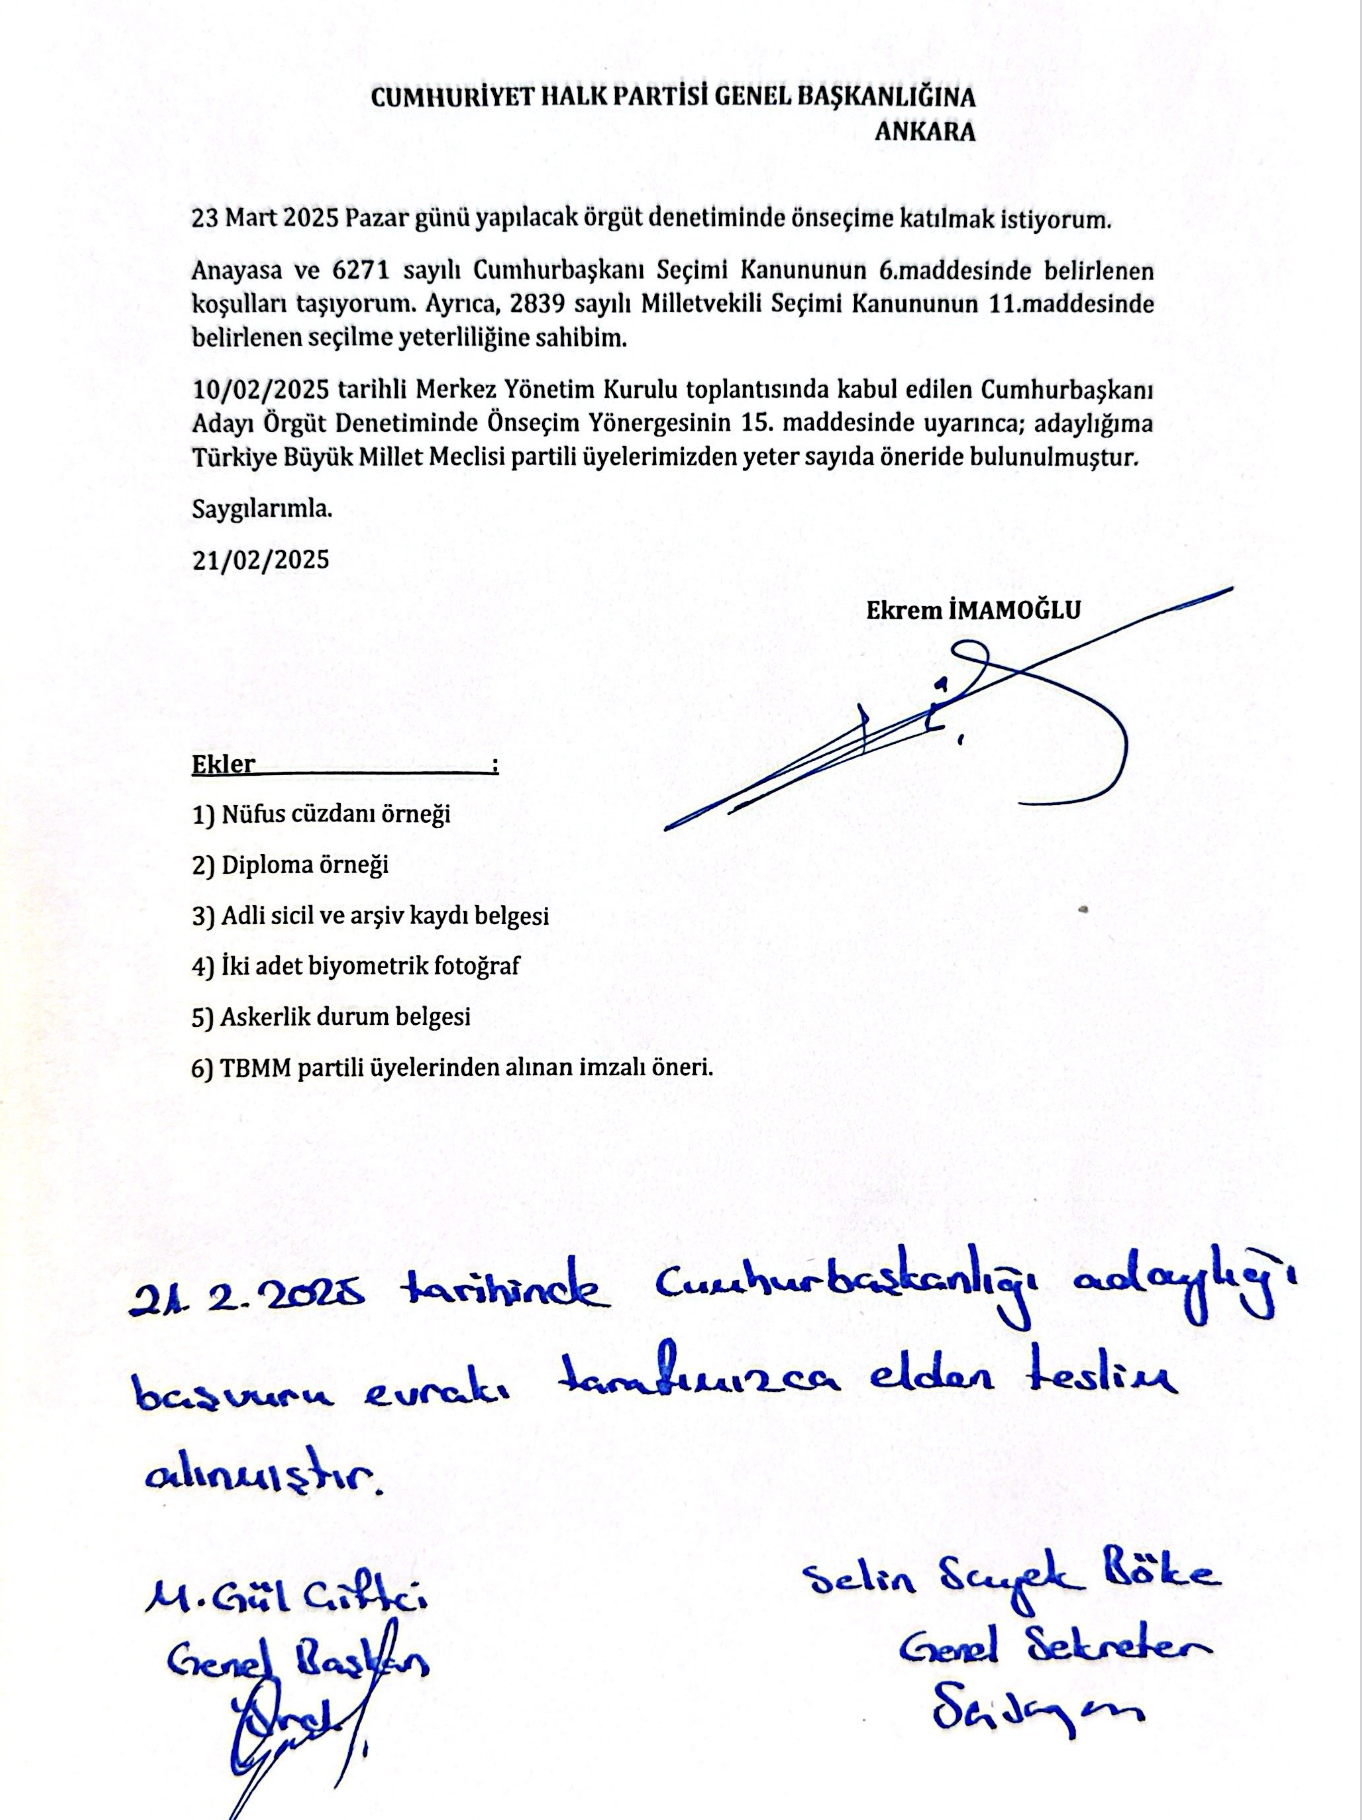 CUMHURİYET HALK PARTİSİ GENEL BAŞKANLIĞINA
ANKARA
23 Mart 2025 Pazar günü yapılacak örgüt denetiminde önseçime katılmak istiyorum.
Anayasa ve 6271 sayılı Cumhurbaşkanı Seçimi Kanununun 6.maddesinde belirlenen
koşulları taşıyorum. Ayrıca, 2839 sayılı Milletvekili Seçimi Kanununun 11.maddesinde
belirlenen seçilme yeterliliğine sahibim.
10/02/2025 tarihli Merkez Yönetim Kurulu toplantısında kabul edilen Cumhurbaşkanı
Adayı Örgüt Denetiminde Önseçim Yönergesinin 15. maddesinde uyarınca; adaylığıma
Türkiye Büyük Millet Meclisi partili üyelerimizden yeter sayıda öneride bulunulmuştur.
Saygılarımla.
21/02/2025
Ekrem İMAMOĞLU
Ekler :
1) Nüfus cüzdanı örneği
2) Diploma örneği
3) Adli sicil ve arşiv kaydı belgesi
4) İki adet biyometrik fotoğraf
5) Askerlik durum belgesi
6) TBMM partili üyelerinden alınan imzalı öneri.
21.2.2025 tarihinde Cumhurbaşkanlığı adaylığı
başvuru evrakı tarafımızca elden teslim
alınmıştır.
M. Gül Çiftci
Selin Sayek Böke
Genel Başkan
Genel Sekreter